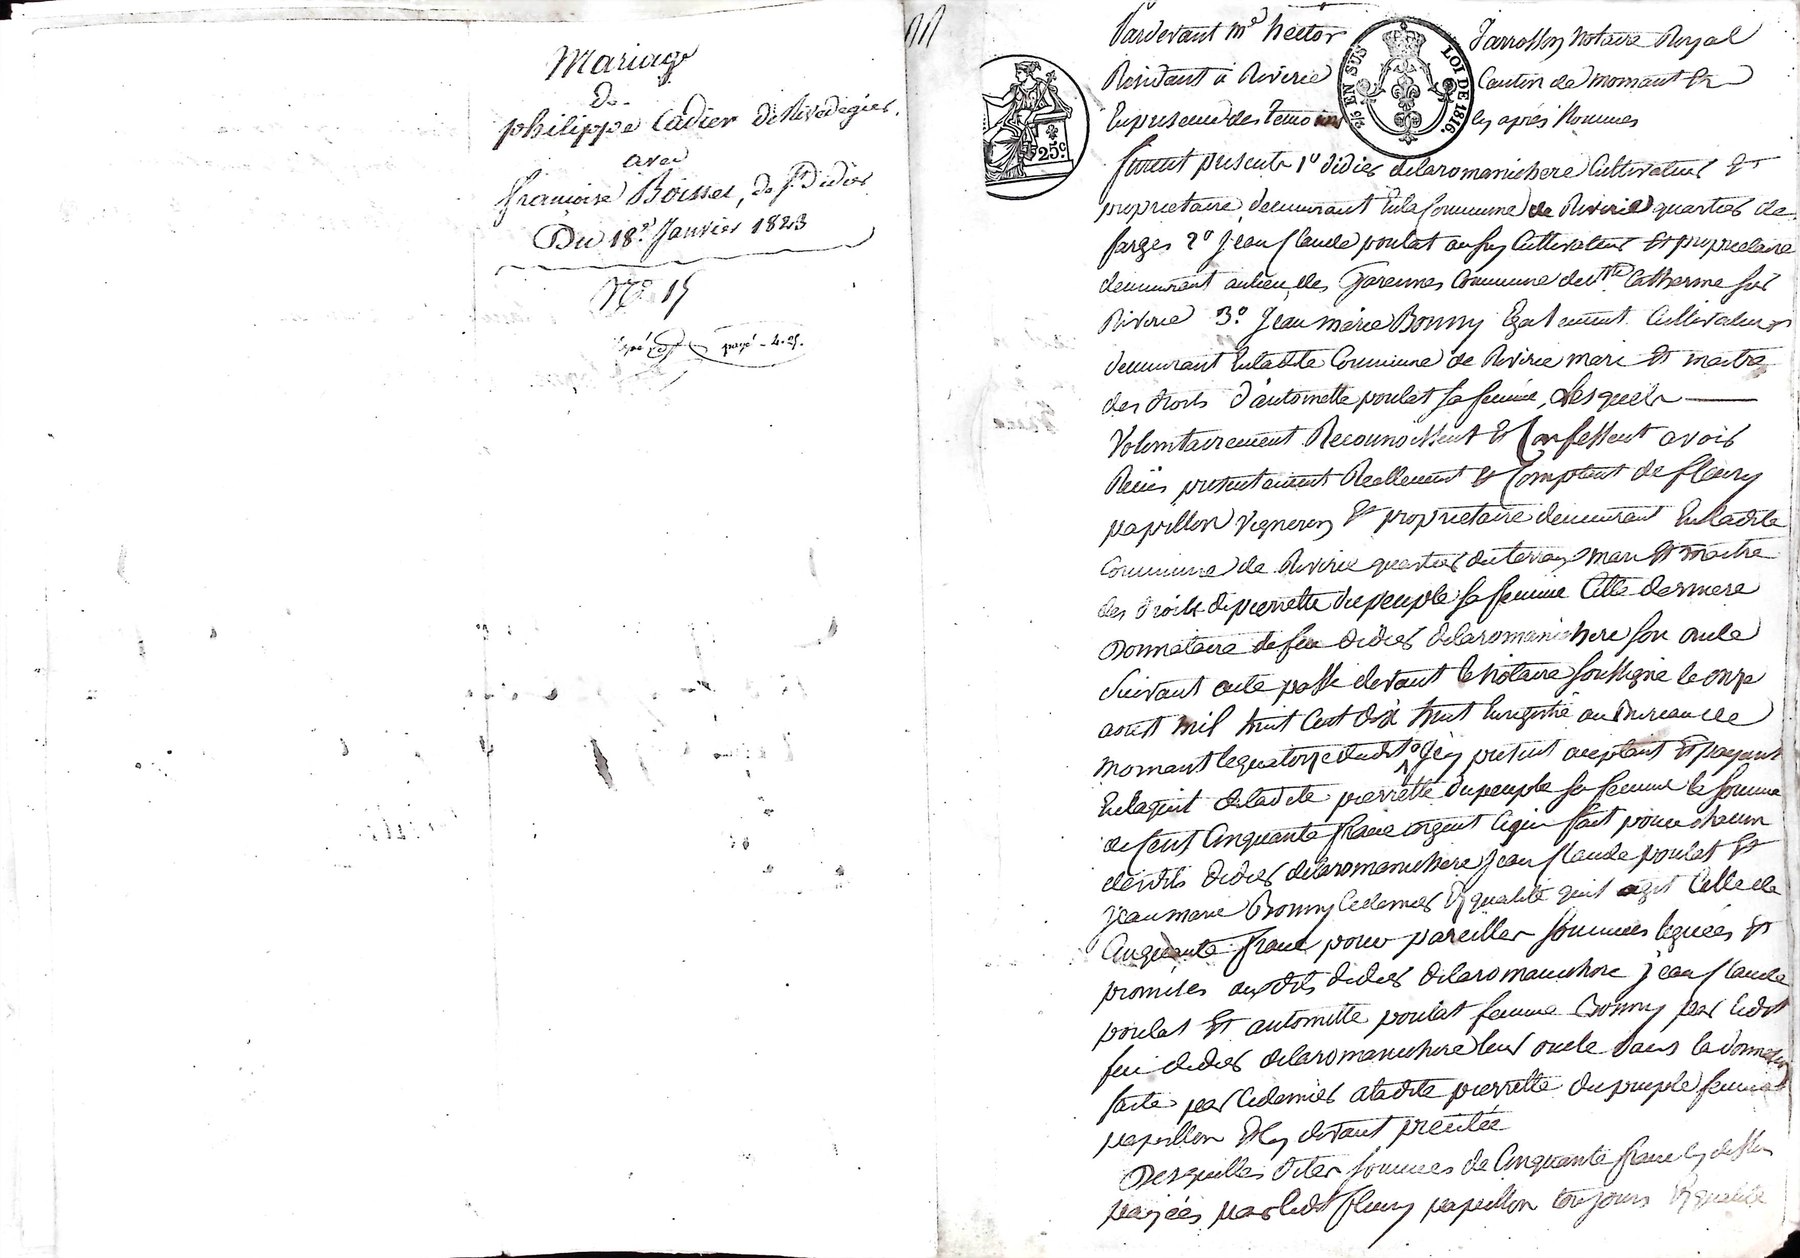 Mariage
De
philippe Cadier de Rivedegier.
avec
françoise Boisset, de St. Didier
Du 18e. Janvier 1823
No. 15
payé - 4.25.
Pardevant me hector Jarrosson Notaire Royal
Résidant à Riverie Canton de mornant Et
En presence des temoins cy après Nommés
2/9 EN SUS LOI DE 1816.
25c.
furent presents 1o didier delaromanichere Cultivateur Et
proprietaire demeurant En la Commune de Riverie quartier de
farges 2o jean Claude poulat aussy Cultivateur Et proprietaire
demeurant au lieu des Garennes Commune de Ste. Catherine sur
Riverie 3o. Jean marie Bonny Egalement Cultivateur
demeurant En ladite Commune de Riverie mari Et maitre
des droits d'antoinette poulat sa femme, Lesquels
Volontairement Reconnoissent Et Confessent avoir
Reçus presentement Reellement Et Comptant de fleury
papillon Vigneron Et proprietaire demeurant En ladite
Commune de Riverie quartier du terray mari Et maitre
des droits de pierrette dupeuple sa femme Cette derniere
Donnataire de feu didier delaromanichere son oncle
Suivant acte passé devant le Notaire soussigné le onze
aoust mil huit Cent dix huit Enregistré au Bureau de
mornant le quatorze dudit icy present acceptant Et payant
En l'aquit de ladite pierrette dupeuple sa femme la somme
de Cent Cinquante franc argent Ce qui fait pour chacun
desdits didier delaromanichere jean Claude poulat Et
jean marie Bonny Ce dernier En qualité qu'il agit Celle de
Cinquante franc pour pareilles sommes leguées Et
promises auxdits didier delaromanichere jean Claude
poulat Et antoinette poulat femme Bonny par Ledit
feu didier delaromanichere leur oncle dans la donnation
faite par Ce dernier a ladite pierrette dupeuple femme
papillon Et Cy devant précitée
Desquelles dites sommes de Cinquante franc Cy dessus
payées par ledit fleury papillon toujours En qualité